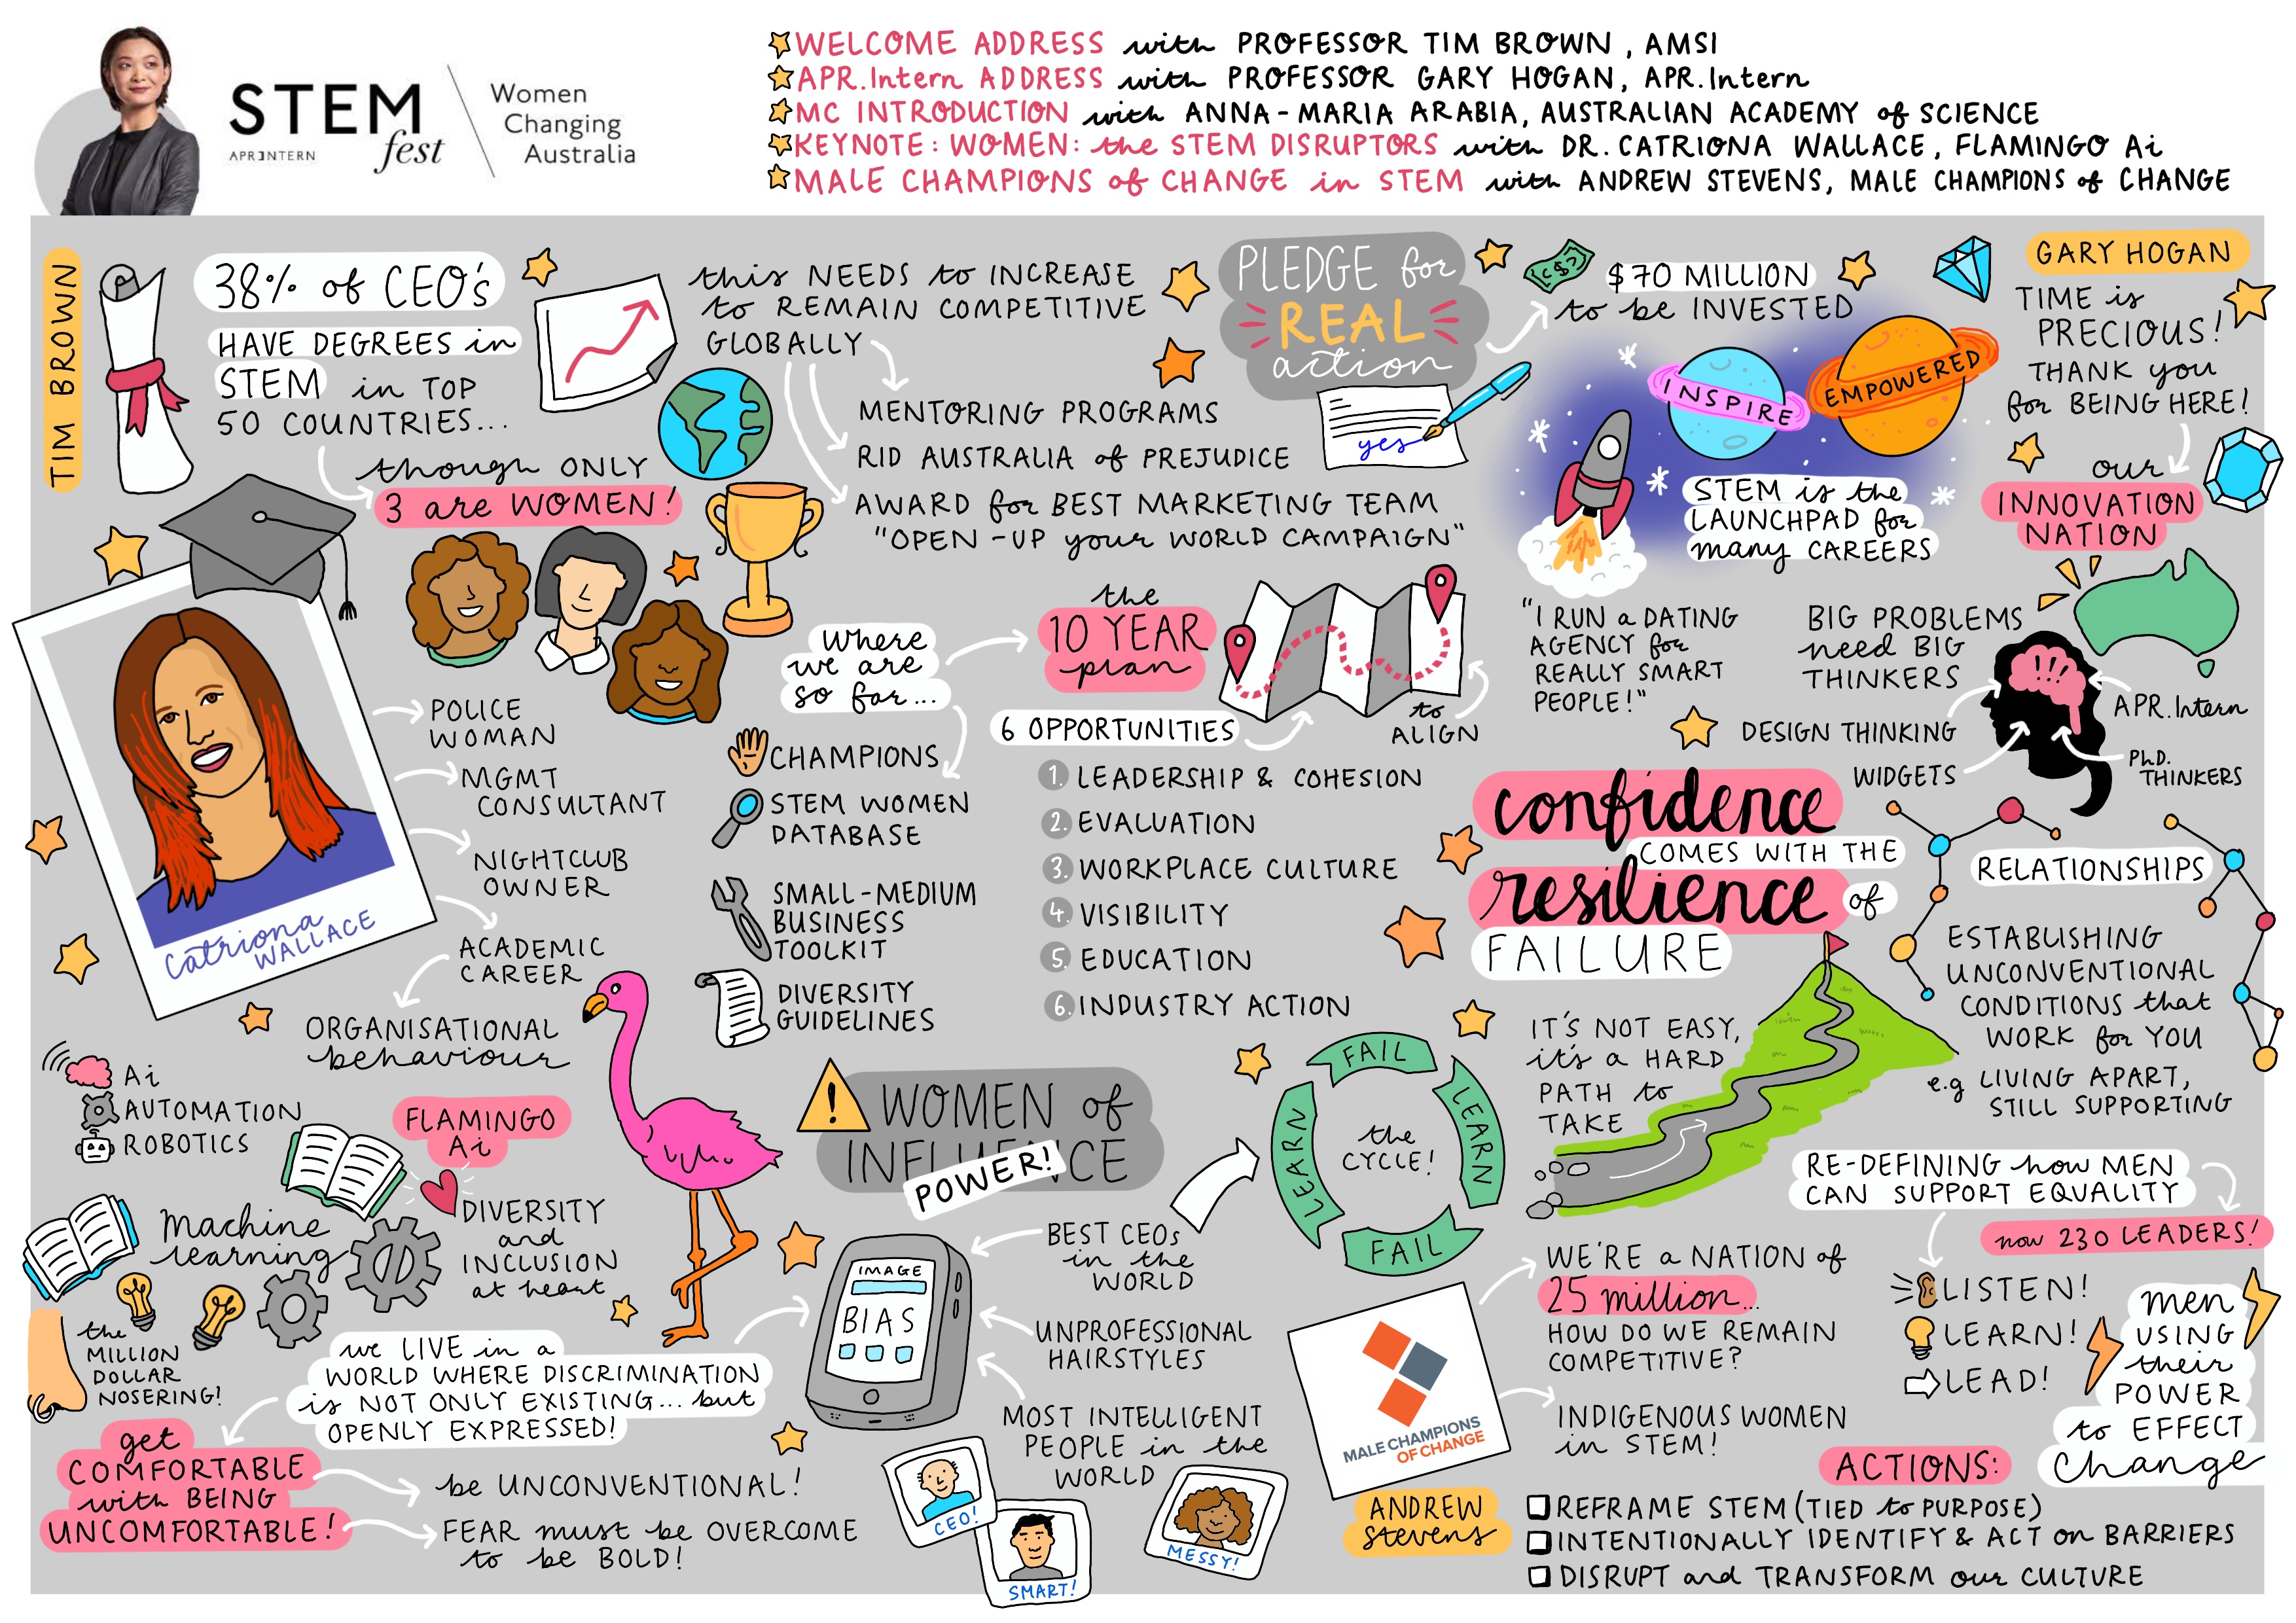 STEM
fest
APR3NTERN
Women
Changing
Australia
WELCOME ADDRESS with PROFESSOR TIM BROWN, AMSI
APR.Intern ADDRESS with PROFESSOR GARY HOGAN, APR.Intern
MC INTRODUCTION with ANNA-MARIA ARABIA, AUSTRALIAN ACADEMY of SCIENCE
KEYNOTE: WOMEN: the STEM DISRUPTORS with DR. CATRIONA WALLACE, FLAMINGO Ai
MALE CHAMPIONS of CHANGE in STEM with ANDREW STEVENS, MALE CHAMPIONS of CHANGE
TIM BROWN
38% of CEO's
HAVE DEGREES in
STEM in TOP
50 COUNTRIES...
though ONLY
3 are WOMEN!
this NEEDS to INCREASE
to REMAIN COMPETITIVE
GLOBALLY
MENTORING PROGRAMS
RID AUSTRALIA of PREJUDICE
AWARD for BEST MARKETING TEAM
"OPEN-UP your WORLD CAMPAIGN"
PLEDGE for
REAL
action
yes
$70 MILLION
to be INVESTED
INSPIRE
EMPOWERED
STEM is the
LAUNCHPAD for
many CAREERS
GARY HOGAN
TIME is
PRECIOUS!
THANK you
for BEING HERE!
our
INNOVATION
NATION
"I RUN a DATING
AGENCY for
REALLY SMART
PEOPLE!"
BIG PROBLEMS
need BIG
THINKERS
!!!
DESIGN THINKING
WIDGETS
APR.Intern
PhD.
THINKERS
Where
we are
so far...
CHAMPIONS
STEM WOMEN
DATABASE
SMALL-MEDIUM
BUSINESS
TOOLKIT
DIVERSITY
GUIDELINES
the
10 YEAR
plan
6 OPPORTUNITIES
to
ALIGN
1. LEADERSHIP & COHESION
2. EVALUATION
3. WORKPLACE CULTURE
4. VISIBILITY
5. EDUCATION
6. INDUSTRY ACTION
Catriona
WALLACE
POLICE
WOMAN
MGMT
CONSULTANT
NIGHTCLUB
OWNER
ACADEMIC
CAREER
ORGANISATIONAL
behaviour
Ai
AUTOMATION
ROBOTICS
FLAMINGO
Ai
Machine
learning
DIVERSITY
and
INCLUSION
at heart
the
MILLION
DOLLAR
NOSERING!
we LIVE in a
WORLD WHERE DISCRIMINATION
is NOT ONLY EXISTING... but
OPENLY EXPRESSED!
get
COMFORTABLE
with BEING
UNCOMFORTABLE!
be UNCONVENTIONAL!
FEAR must be OVERCOME
to be BOLD!
!
WOMEN of
INFLUENCE
POWER!
IMAGE
BIAS
BEST CEOs
in the
WORLD
UNPROFESSIONAL
HAIRSTYLES
MOST INTELLIGENT
PEOPLE in the
WORLD
CEO!
SMART!
MESSY!
FAIL
LEARN
FAIL
LEARN
the
CYCLE!
confidence
COMES WITH THE
resilience of
FAILURE
IT'S NOT EASY,
it's a HARD
PATH to
TAKE
RELATIONSHIPS
ESTABLISHING
UNCONVENTIONAL
CONDITIONS that
WORK for YOU
e.g LIVING APART,
STILL SUPPORTING
RE-DEFINING how MEN
CAN SUPPORT EQUALITY
now 230 LEADERS!
LISTEN!
LEARN!
LEAD!
men
USING
their
POWER
to EFFECT
Change
MALE CHAMPIONS
OF CHANGE
ANDREW
Stevens
WE'RE a NATION of
25 million...
HOW DO WE REMAIN
COMPETITIVE?
INDIGENOUS WOMEN
in STEM!
ACTIONS:
REFRAME STEM (TIED to PURPOSE)
INTENTIONALLY IDENTIFY & ACT on BARRIERS
DISRUPT and TRANSFORM our CULTURE